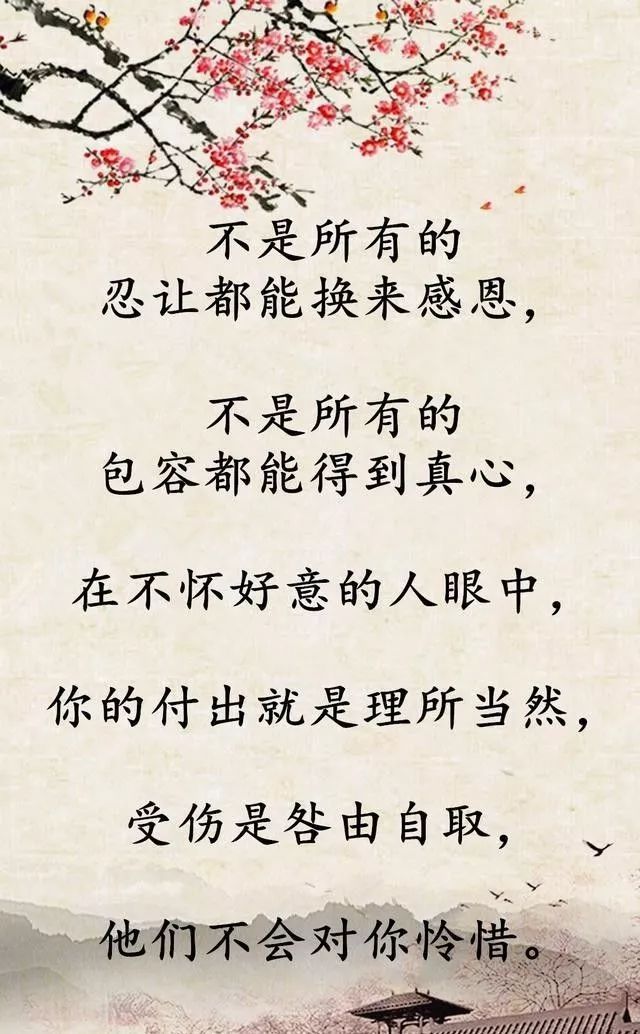 不是所有的
忍让都能换来感恩，
不是所有的
包容都能得到真心，
在不怀好意的人眼中，
你的付出就是理所当然，
受伤是咎由自取，
他们不会对你怜惜。